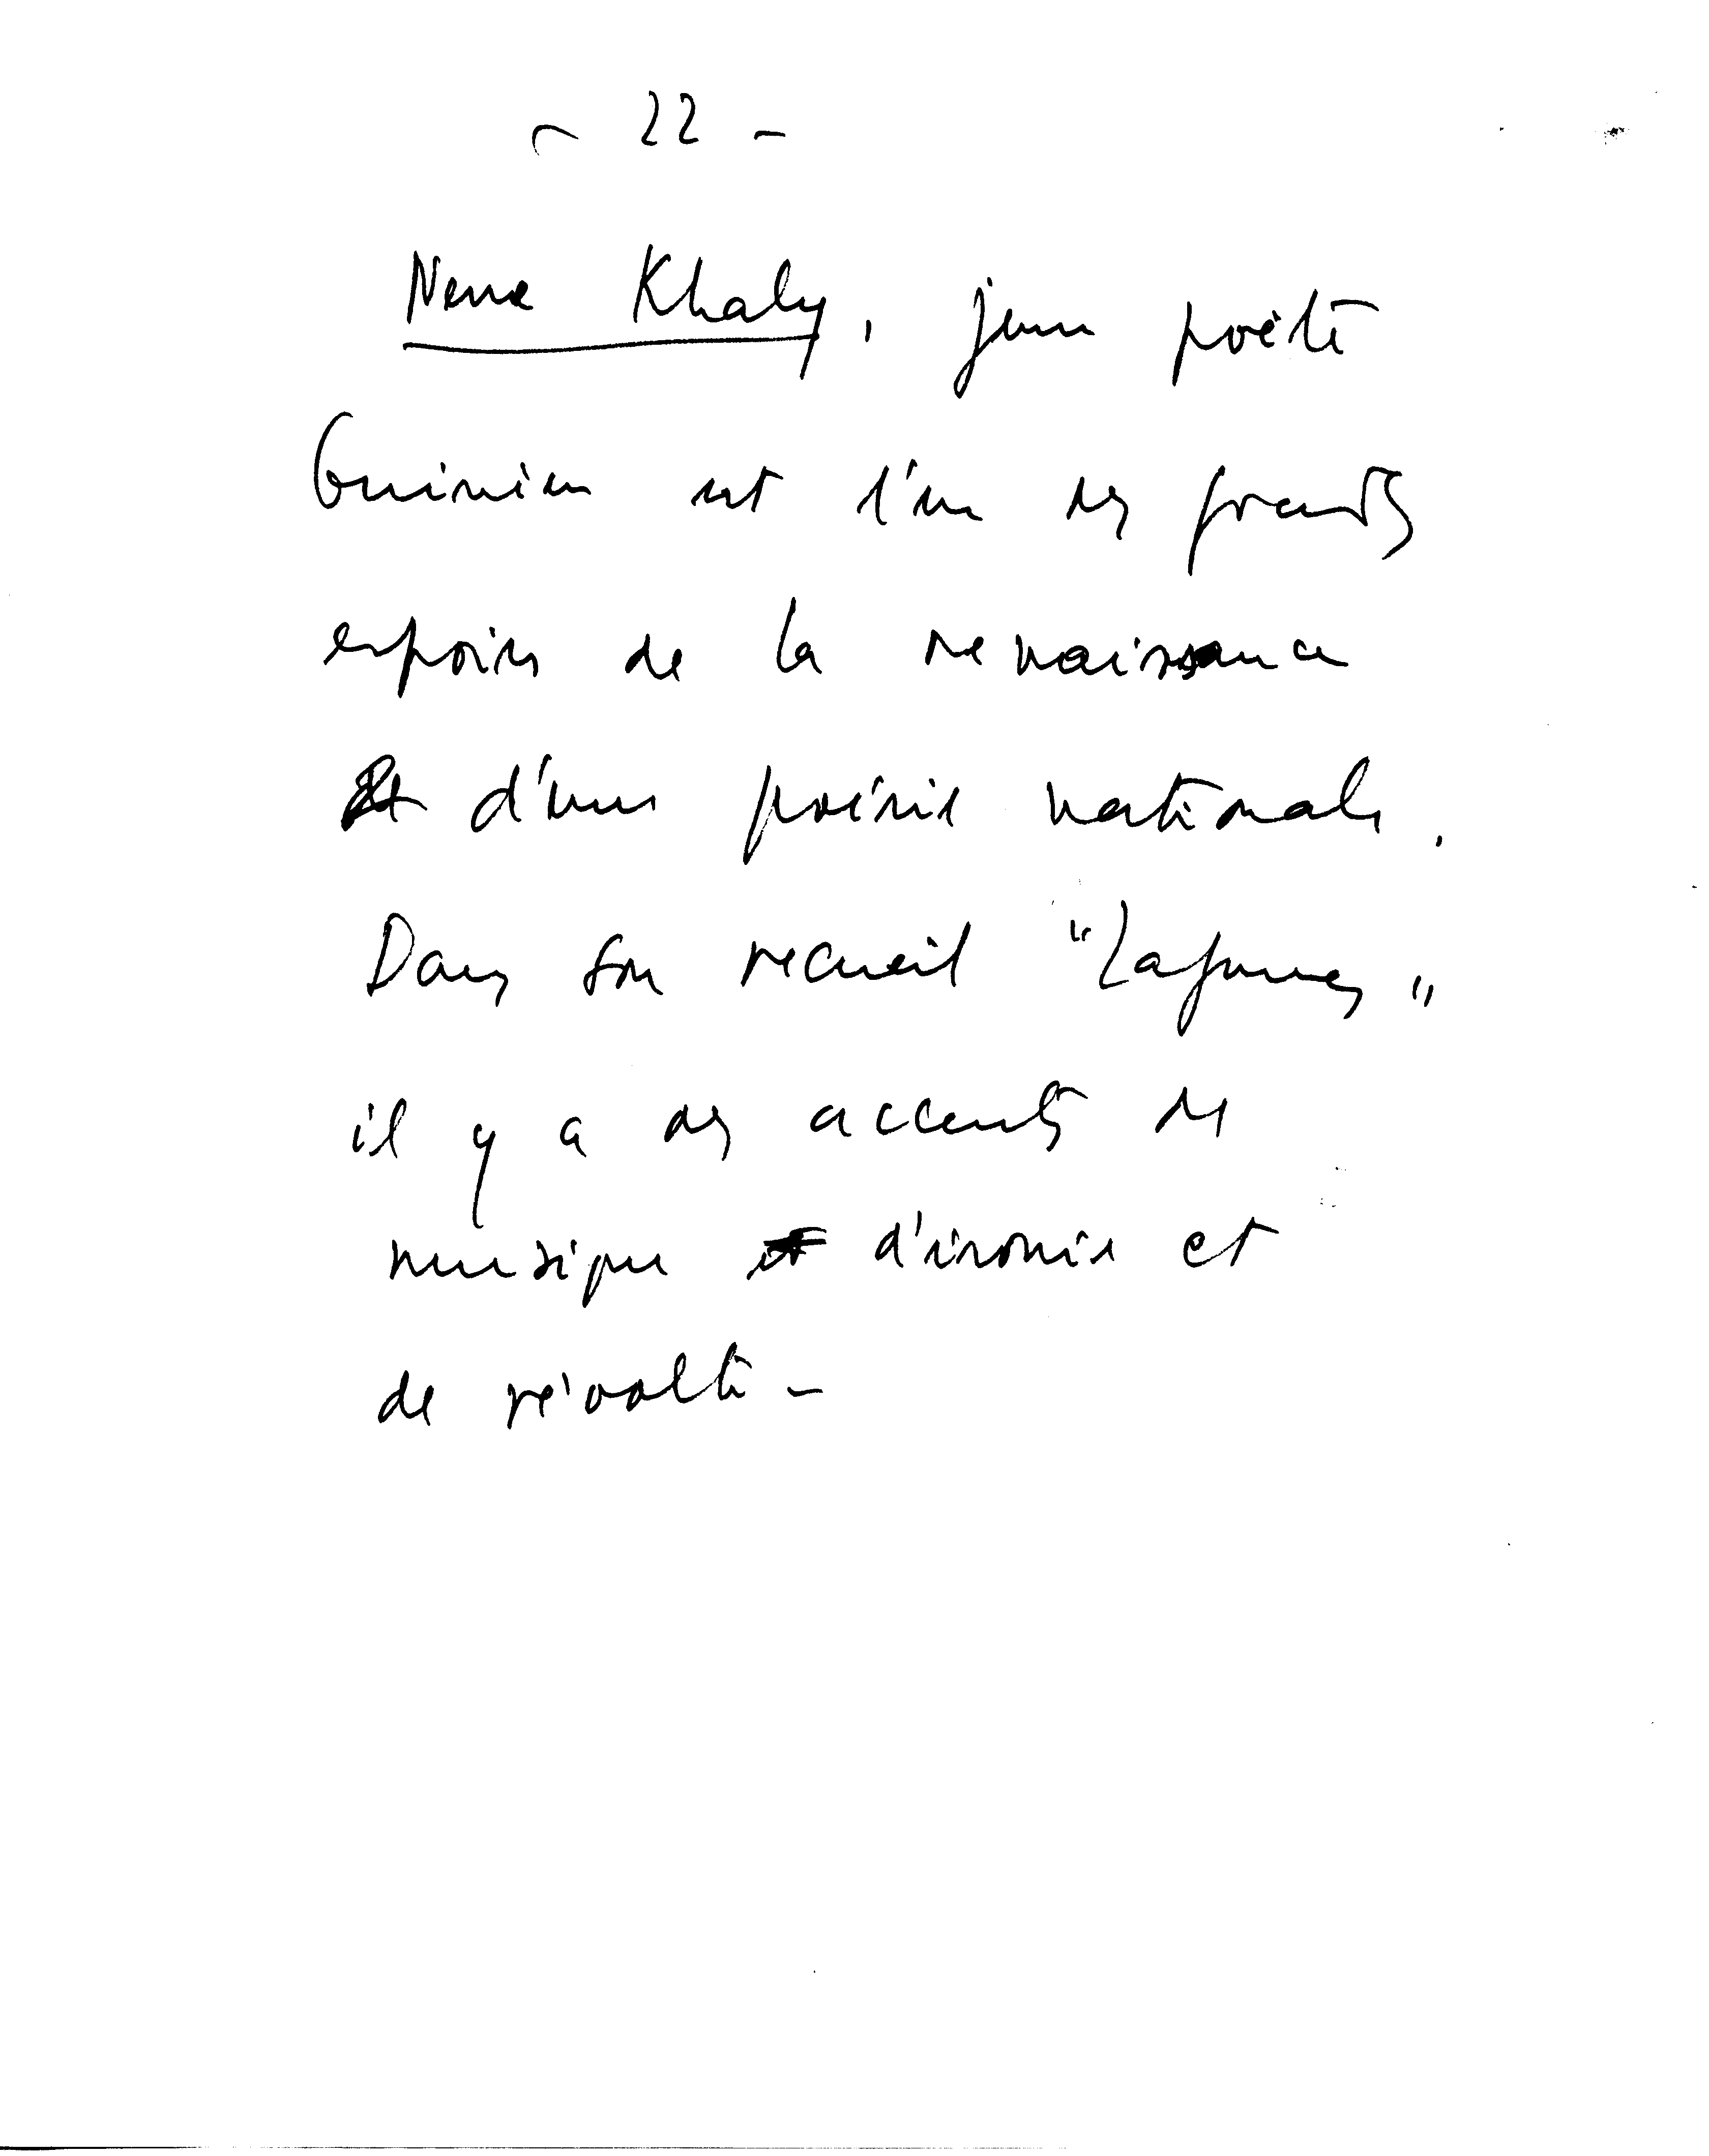 - 22 -
Nene Khaly, jeune poète
Guinéen est l'un des grands
espoirs de la renaissance
d'une poésie nationale.
Dans son recueil "Lagunes"
il y a des accents de
musique d'ironie et
de révolte -